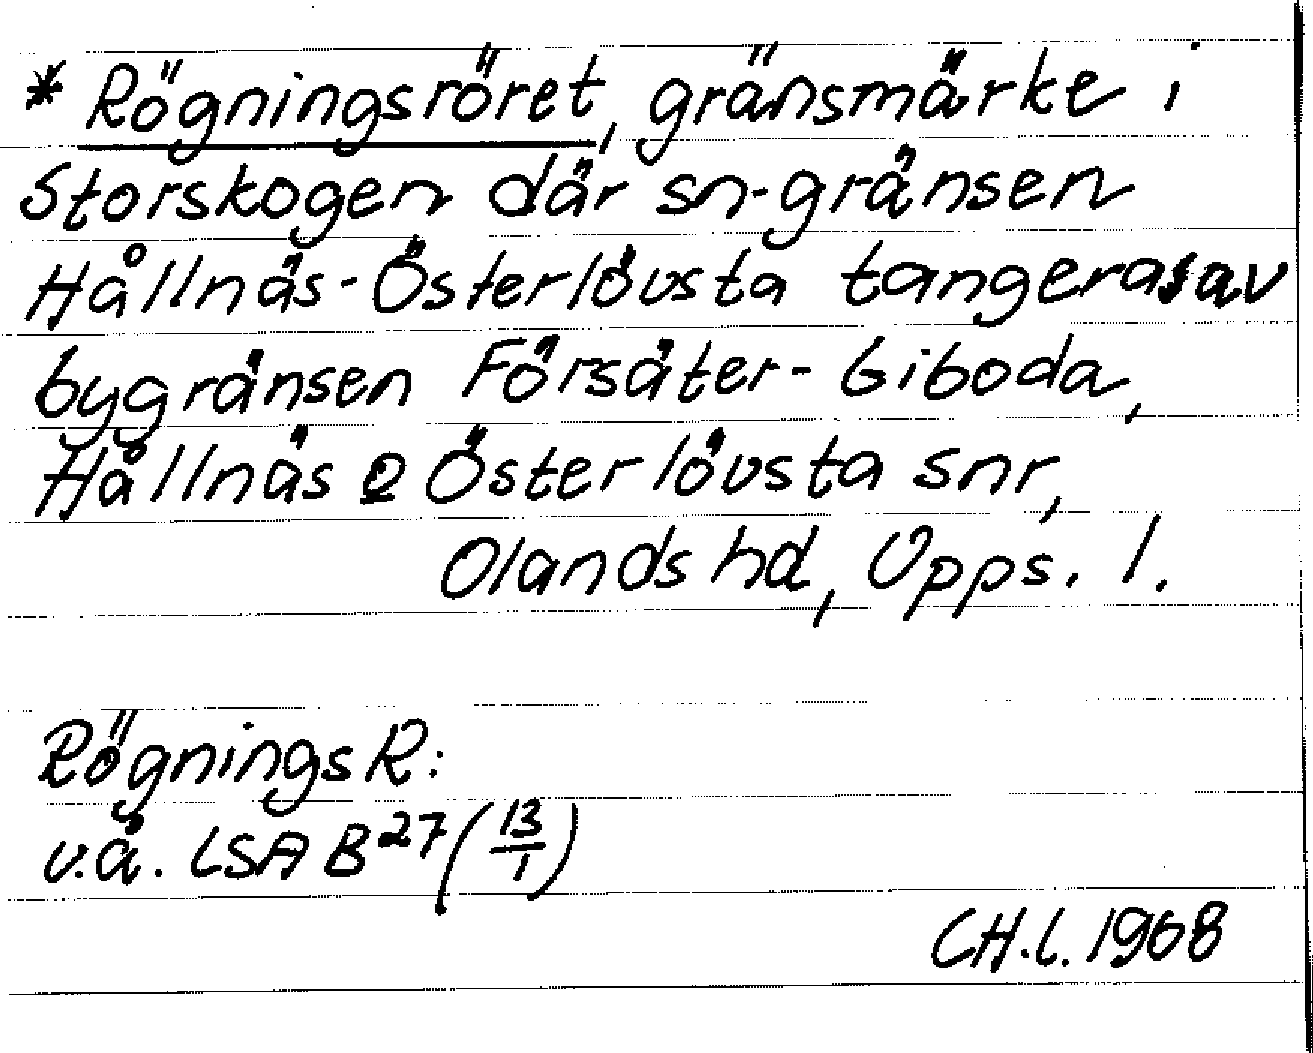 * Rögningsröret, gränsmärke i
Storskogen där sn-gränsen
Hållnäs-Österlövsta tangeras av
bygränsen Försäter-Giboda,
Hållnäs o Österlövsta snr,
Olands hd, Upps. l.
Rögnings R:
v.å. LSA B²⁷ (13/1)
CH.L. 1968